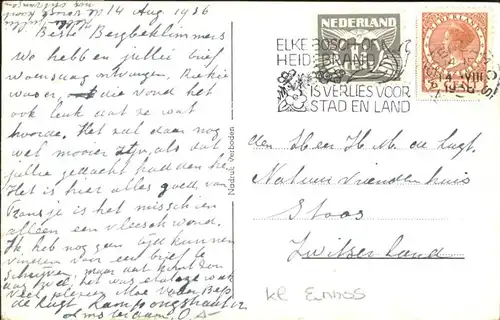 14 Aug. 1936
Beste Bergbeklimmers
We hebben jullie brief
woensdag ontvangen. Riekie
was er, die vond het
ook leuk dat ze wat
hoorde. Het zal daar nog
wel mooier zijn, als dat
jullie gedacht hadden he.
Het is hier alles goed van
Fransje is het misschien
alleen een vleeschwond.
Ik heb nog geen tijd kunnen
vinden voor een brief te
schrijven, maar dat komt
veel plezier Moe Bep
de Lugt Lampongstraat 12
Amsterdam. O
NEDERLAND
NEDERLAND
ELKE BOSCH OF
HEIDEBRAND
IS VERLIES VOOR
STAD EN LAND
14 VIII
1936
Nadruk Verboden
den Heer H. M. de Lugt.
Natuur Vriendenhuis
Stoos
Zwitserland